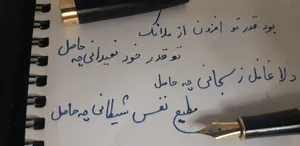 بود قدر تو افزون از ملائک
تو قدر خود نمیدانی چه حاصل
دلا غافل ز سبحانی چه حاصل
مطیع نفس شیطانی چه حاصل